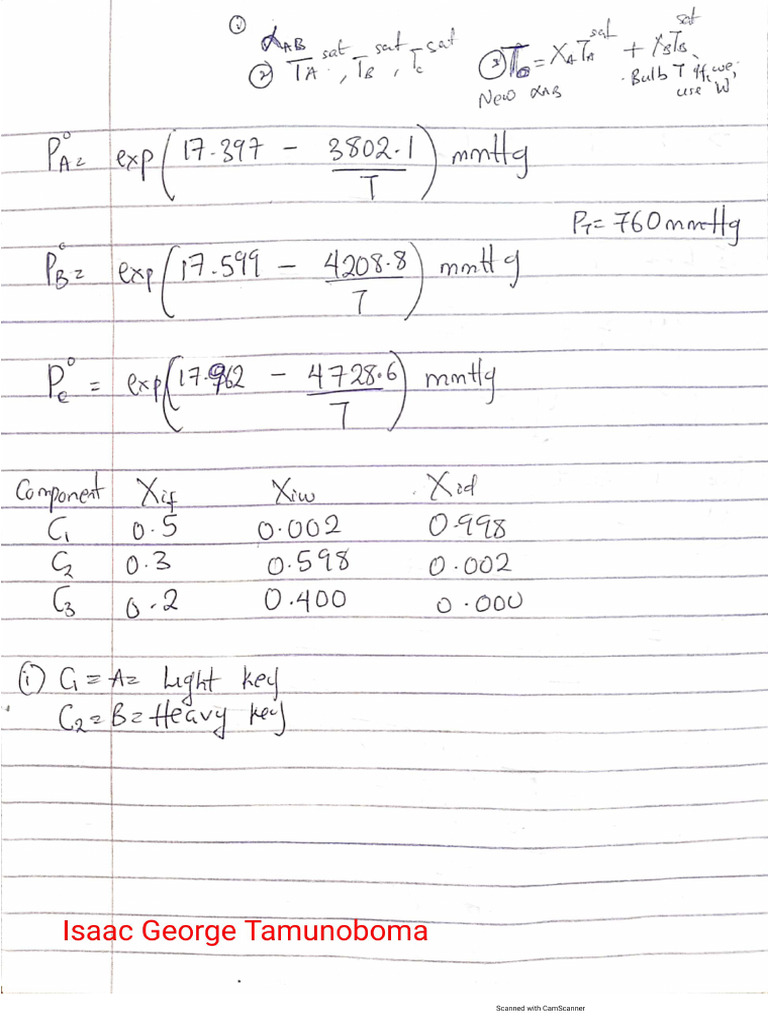 ①
α_AB
② T_A^sat, T_B^sat, T_C^sat
③ T_D = X_A T_A^sat + X_B T_B^sat
Bulb T
use W
New α_AB
P_A° = exp(17.397 - 3802.1/T) mmHg
P_T = 760mmHg
P_B° = exp(17.599 - 4208.8/T) mmHg
P_c° = exp(17.962 - 4728.6/T) mmHg
Component X_if X_iw X_id
C₁ 0.5 0.002 0.998
C₂ 0.3 0.598 0.002
C₃ 0.2 0.400 0.000
(i) C₁ = A = Light key
C₂ = B = Heavy key
Isaac George Tamunoboma
Scanned with CamScanner